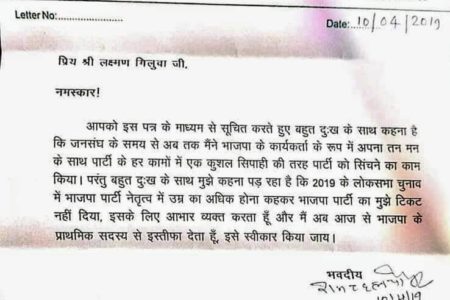 Letter No:
Date: 10/04/2019
प्रिय श्री लक्ष्मण गिलुवा जी,
नमस्कार!
आपको इस पत्र के माध्यम से सूचित करते हुए बहुत दुःख के साथ कहना है
कि जनसंघ के समय से अब तक मैंने भाजपा के कार्यकर्ता के रूप में अपना तन मन
के साथ पार्टी के हर कामों में एक कुशल सिपाही की तरह पार्टी को सिंचने का काम
किया। परंतु बहुत दुःख के साथ मुझे कहना पड़ रहा है कि 2019 के लोकसभा चुनाव
में भाजपा पार्टी नेतृत्व में उम्र का अधिक होना कहकर भाजपा पार्टी का मुझे टिकट
नहीं दिया, इसके लिए आभार व्यक्त करता हूँ और मैं अब आज से भाजपा के
प्राथमिक सदस्य से इस्तीफा देता हूँ, इसे स्वीकार किया जाय।
भवदीय
10/4/19